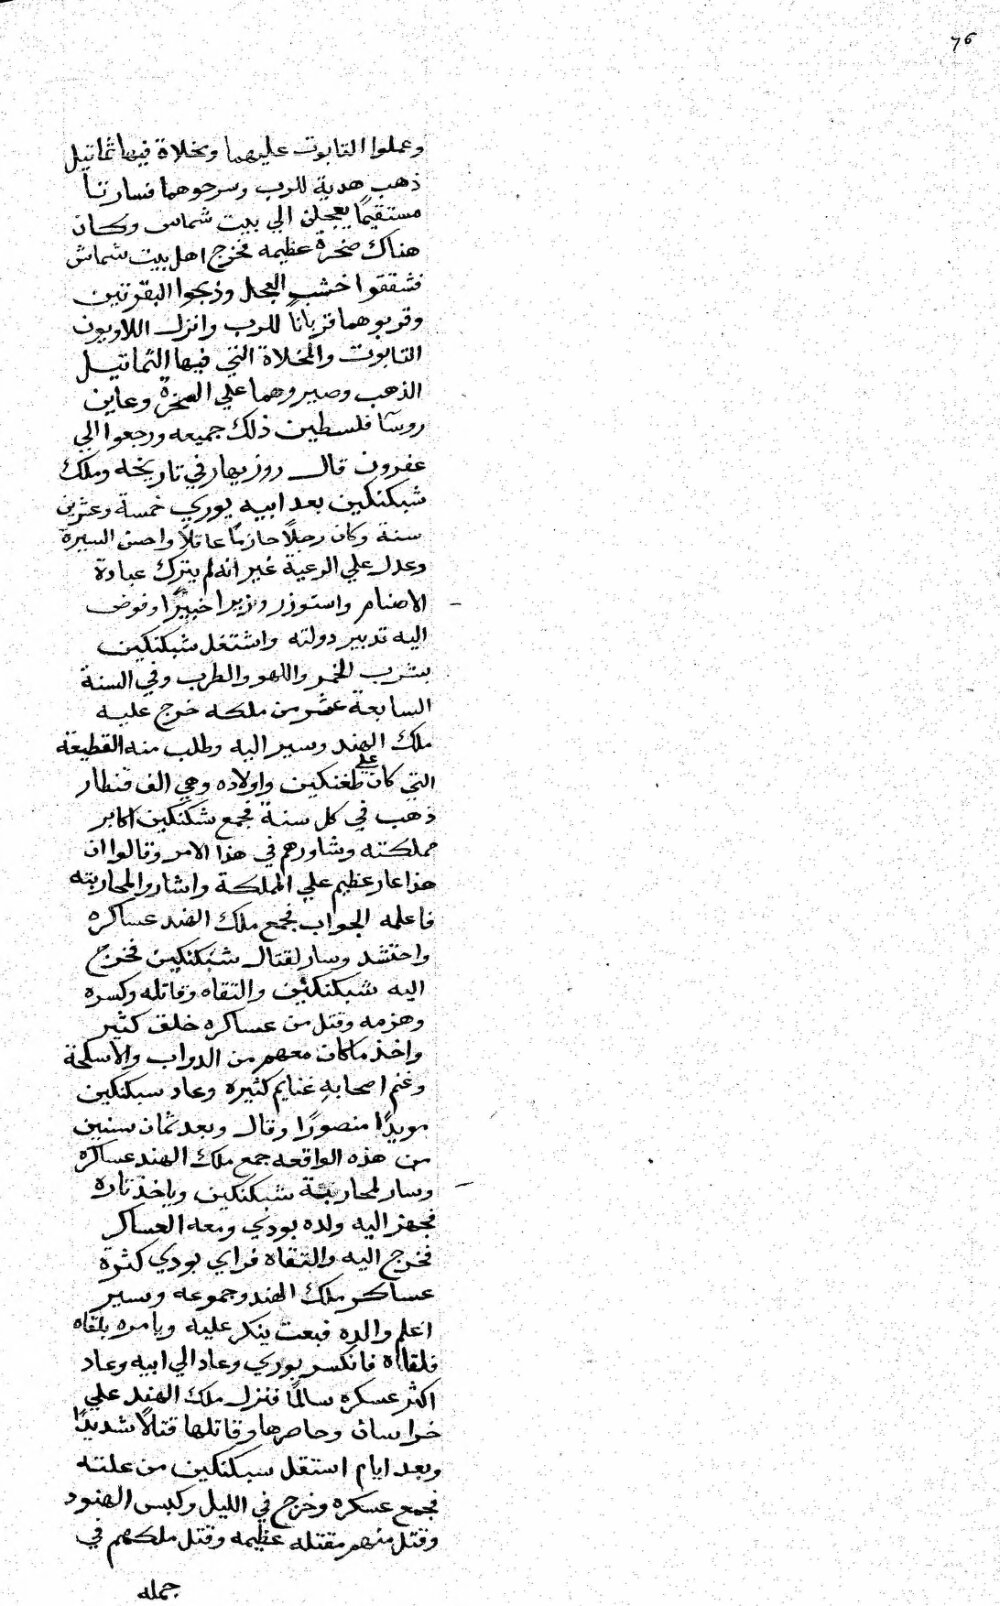 76
وعملوا التابوت عليهما ومخلاة فيها تماتيل
ذهب هدية للرب وسرحوهما فسارتا
مستقيمًا بعجلن الي بيت شماس وكان
هناك صخرة عظيمه فخرج اهل بيت شماش
فشققوا خشب العجل وذبحوا البقرتين
وقربوهما قربانًا للرب وانزل اللاويون
التابوت والمخلاة التي فيها التماتيل
الذهب وصيروهما علي الصخرة وعاين
روسآ فلسطين ذلك جميعه ورجعوا الي
عفرون قال روزبهار في تاريخه وملك
شبكنكين بعد ابيه يوري خمسة وعشرين
سنة وكان رجلًا حازمًا عاقلًا واحسن السيرة
وعدل علي الرعية غير انه لم يترك عبادة
الاصنام واستوزر وزيرا خبيرًا وفوض
اليه تدبير دولته واشتغل شبكنكين
بشرب الخمر واللهو والطرب وفي السنة
السابعة عشر من ملكه خرج عليه
ملك الهند وسير اليه وطلب منه القطيعة
التي كان علي طغنكين واولاده وهي الف قنطار
ذهب في كل سنة فجمع شكنكين اكابر
مملكته وشاورهم في هذا الامر وقالوا ان
هذا عار عظيم علي المملكة واشاروا لمحاربته
فاعلمه الجواب فجمع ملك الهند عساكره
واحتشد وسار لقتال شبكنكين فخرج
اليه شبكنكين والتقاه وقاتله وكسره
وهزمه وقتل من عساكره خلق كثير
واخذ ماكان معهم من الدواب والاسلحة
وغنم اصحابه غنايم كثيره وعاد سبكنكين
مويدًا منصورًا وقال وبعد ثمان سنين
من هذه الواقعه جمع ملك الهند عساكره
وسار لمحاربتة شبكنكين وياخذ تاره
فجهز اليه ولده بودي ومعه العساكر
فخرج اليه والتقاه فراي بودي كثرة
عساكر ملك الهند وجموعه وسير
اعلم والده فبعت ينكر عليه ويامره بلقاه
فلقاه فانكسر بوري وعاد الي ابيه وعاد
اكثر عسكره سالمًا فنزل ملك الهند علي
خراسان وحاصرها وقاتلها قتالًا شديدًا
وبعد ايام استقل سبكنكين من علته
فجمع عسكره وخرج في الليل وكبس الهنود
وقتل منهم مقتله عظيمه وقتل ملكهم في
جمله